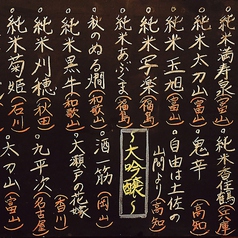 。純米満寿泉(富山)
。純米太刀山(富山)
。純米玉旭(富山)
。純米楽(福島)
。純米あぶくま(福島)
。秋のぬる燗(和歌山)
。純米黒牛(和歌山)
。純米刈穂(秋田)
。純米菊姫(石川)
。純米香住鶴(兵庫)
。鬼辛(高知)
。自由は土佐の
山間より(高知)
大吟醸〜
。酒一筋(岡山)
。大瀬戸の花嫁(香川)
。九平次(名古屋)
。太刀山(富山)